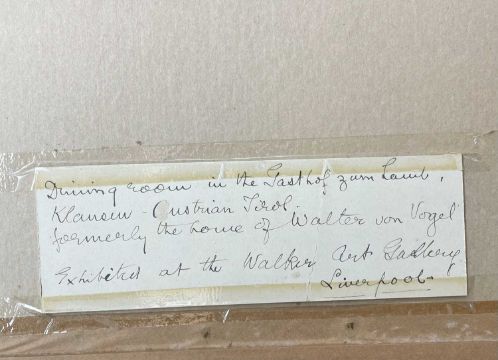 Dining room in the Gasthof zum Lamb,
Klausen - Austrian Tirol.
formerly the home of Walter von Vogel
Exhibited at the Walker Art Gallery
Liverpool